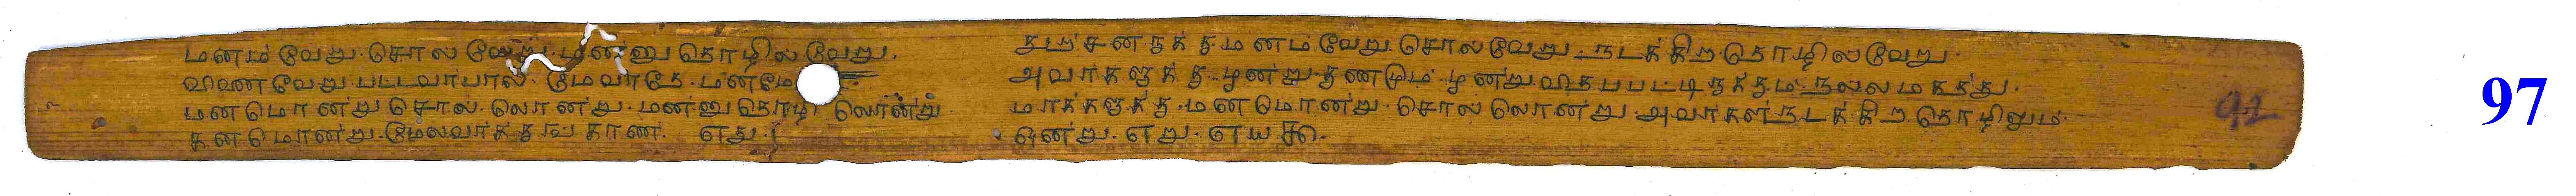 மனம் வேறு சொல வேறு மன்னு தொழில வேறு.
வினை வேறு பட்டவர்பால் மேவாதே மனமே
மனமொன்று சொல் லொன்று மன்னு தொழி லொன்று
கனமொன்று மேலவர்க்கு காண எது
துர்சனருக்கு மனம் வேறு சொல வேறு நடக்கிற தொழில வேறு
அவர்களுக்கு மூன்று குணமும் மூன்று விதபபட்டிருக்கும் நல்ல மகத்து
மாக்களுக்கு மனமொன்று சொல லொன்று அவர்கள் நடக்கிற தொழிலும்
ஒன்று எறு
92
97